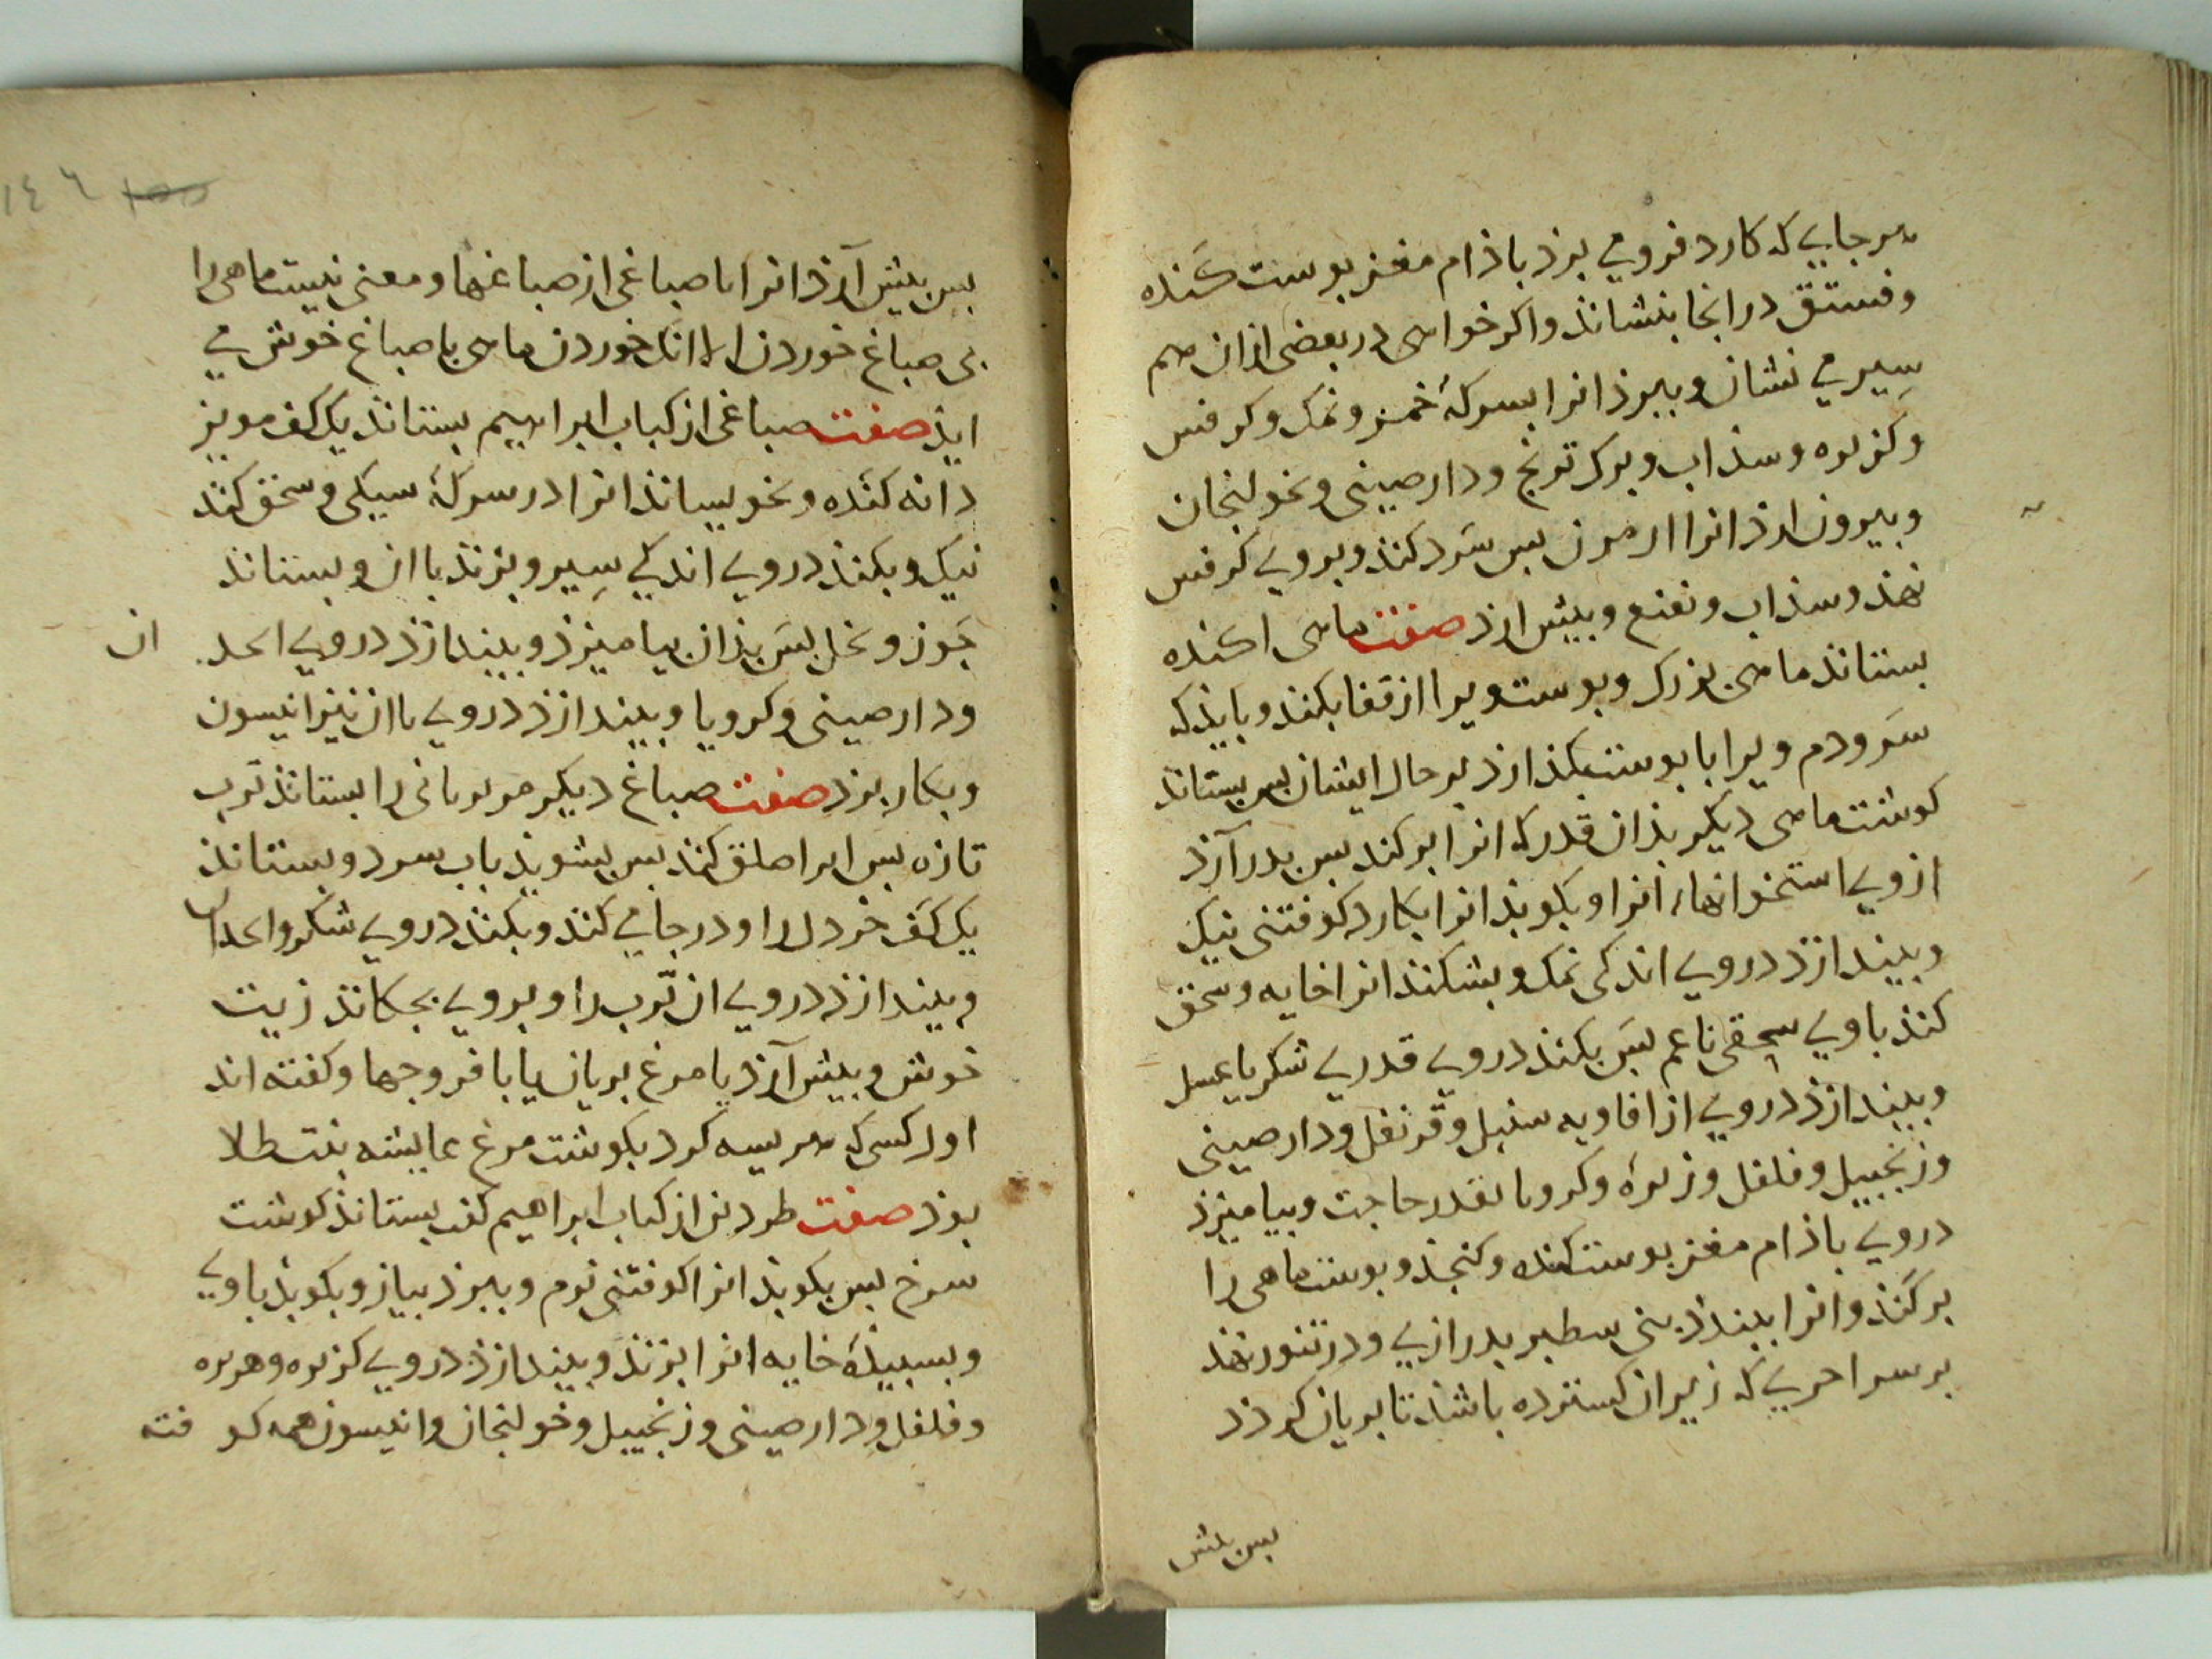 هرجایی که کارد فرومی برذ باذام مغز بوست کنده
و فستق در انجا بنشاند واکر خواهی در بعضی ازان هم
سیر می نشان و ببزد انرا بسرکهٔ خمر و نمک و کرفس
و کزبره و سذاب و برک ترنج و دارصینی و خولنجان
و بیرون ارذ انرا بس سرد کنند و بروی کرفس
نهند و سذاب و نعنع و بیش ارذ صفت ماهی اکنده
بستانذ ماهی بزرک و بوست ویرا از قفا بکند و بایذ که
سر و دم ویرا با بوست بکذارذ بر حال ایشان بس بستاند
کوشت ماهی دیکر بذان قدر که انرا بر کند بس بدر آرذ
از وی استخوانهاء انرا و بکوبذ انرا بکارد کوفتنی نیک
و بیندازذ در وی اندکی نمک و بشکنند انرا خایه و سحق
کنند با وی سحقی ناعم بس بکند در وی قدری شکر یا عسل
و بیندازذ در وی از افاویه سنبل و قرنفل و دارصینی
و زنجبیل و فلفل و زیره و کرویا بقدر حاجت و بیامیزذ
در وی باذام مغز بوست کنده و کنجد و بوست ماهی را
بر کند و انرا ببندد سطبر بدرازی و در تنور نهند
بر سر اجری که زیر ان کسترده باشند تا بریان کردد
بس بیش
١٤٦
بس بیش آرذ انرا با صباغی از صباغها و معنی نیست ماهی را
بی صباغ خوردن الا انک خوردن ماهی با صباغ خوش می
ایذ صفت صباغی از کتاب ابراهیم بستاند یک کف مویز
دانه کنده و بخویساند انرا در سرکهٔ سیکی و سحق کند
نیک و بکند در وی اندکی سیر و بزند با ان و بستاند
جوز و خل بس بذان بیامیزذ و بیندازذ در وی انجدان
و دارصینی و کرویا و بیندازذ در وی با ان نیز انیسون
و بکار برذ صفت صباغ دیکر مر بریانی را بستاند ترب
تازه بس انرا حلق کند بس بشوید باب سرد و بستاند
یک کف خردل را و در جامی کند و بکند در وی شکر و انجدان
و بیندازذ در وی ان ترب را و بروی بجکاند زیت
خوش و بیش آرذ با مرغ بریان یا با فروجها و کفته اند
اول کسی که هریسه کرد بکوشت مرغ عایشه بنت طلا
بوذ صفت طردین از کتاب ابراهیم کفت بستاند کوشت
سرخ بس بکوبذ انرا کوفتنی نرم و ببرذ بیاز و بکوبذ با وی
و بسبیذهٔ خایه انرا بزند و بیندازذ در وی کزبره و زیره
و فلفل و دارصینی و زنجبیل و خولنجان و انیسون همه کوفته